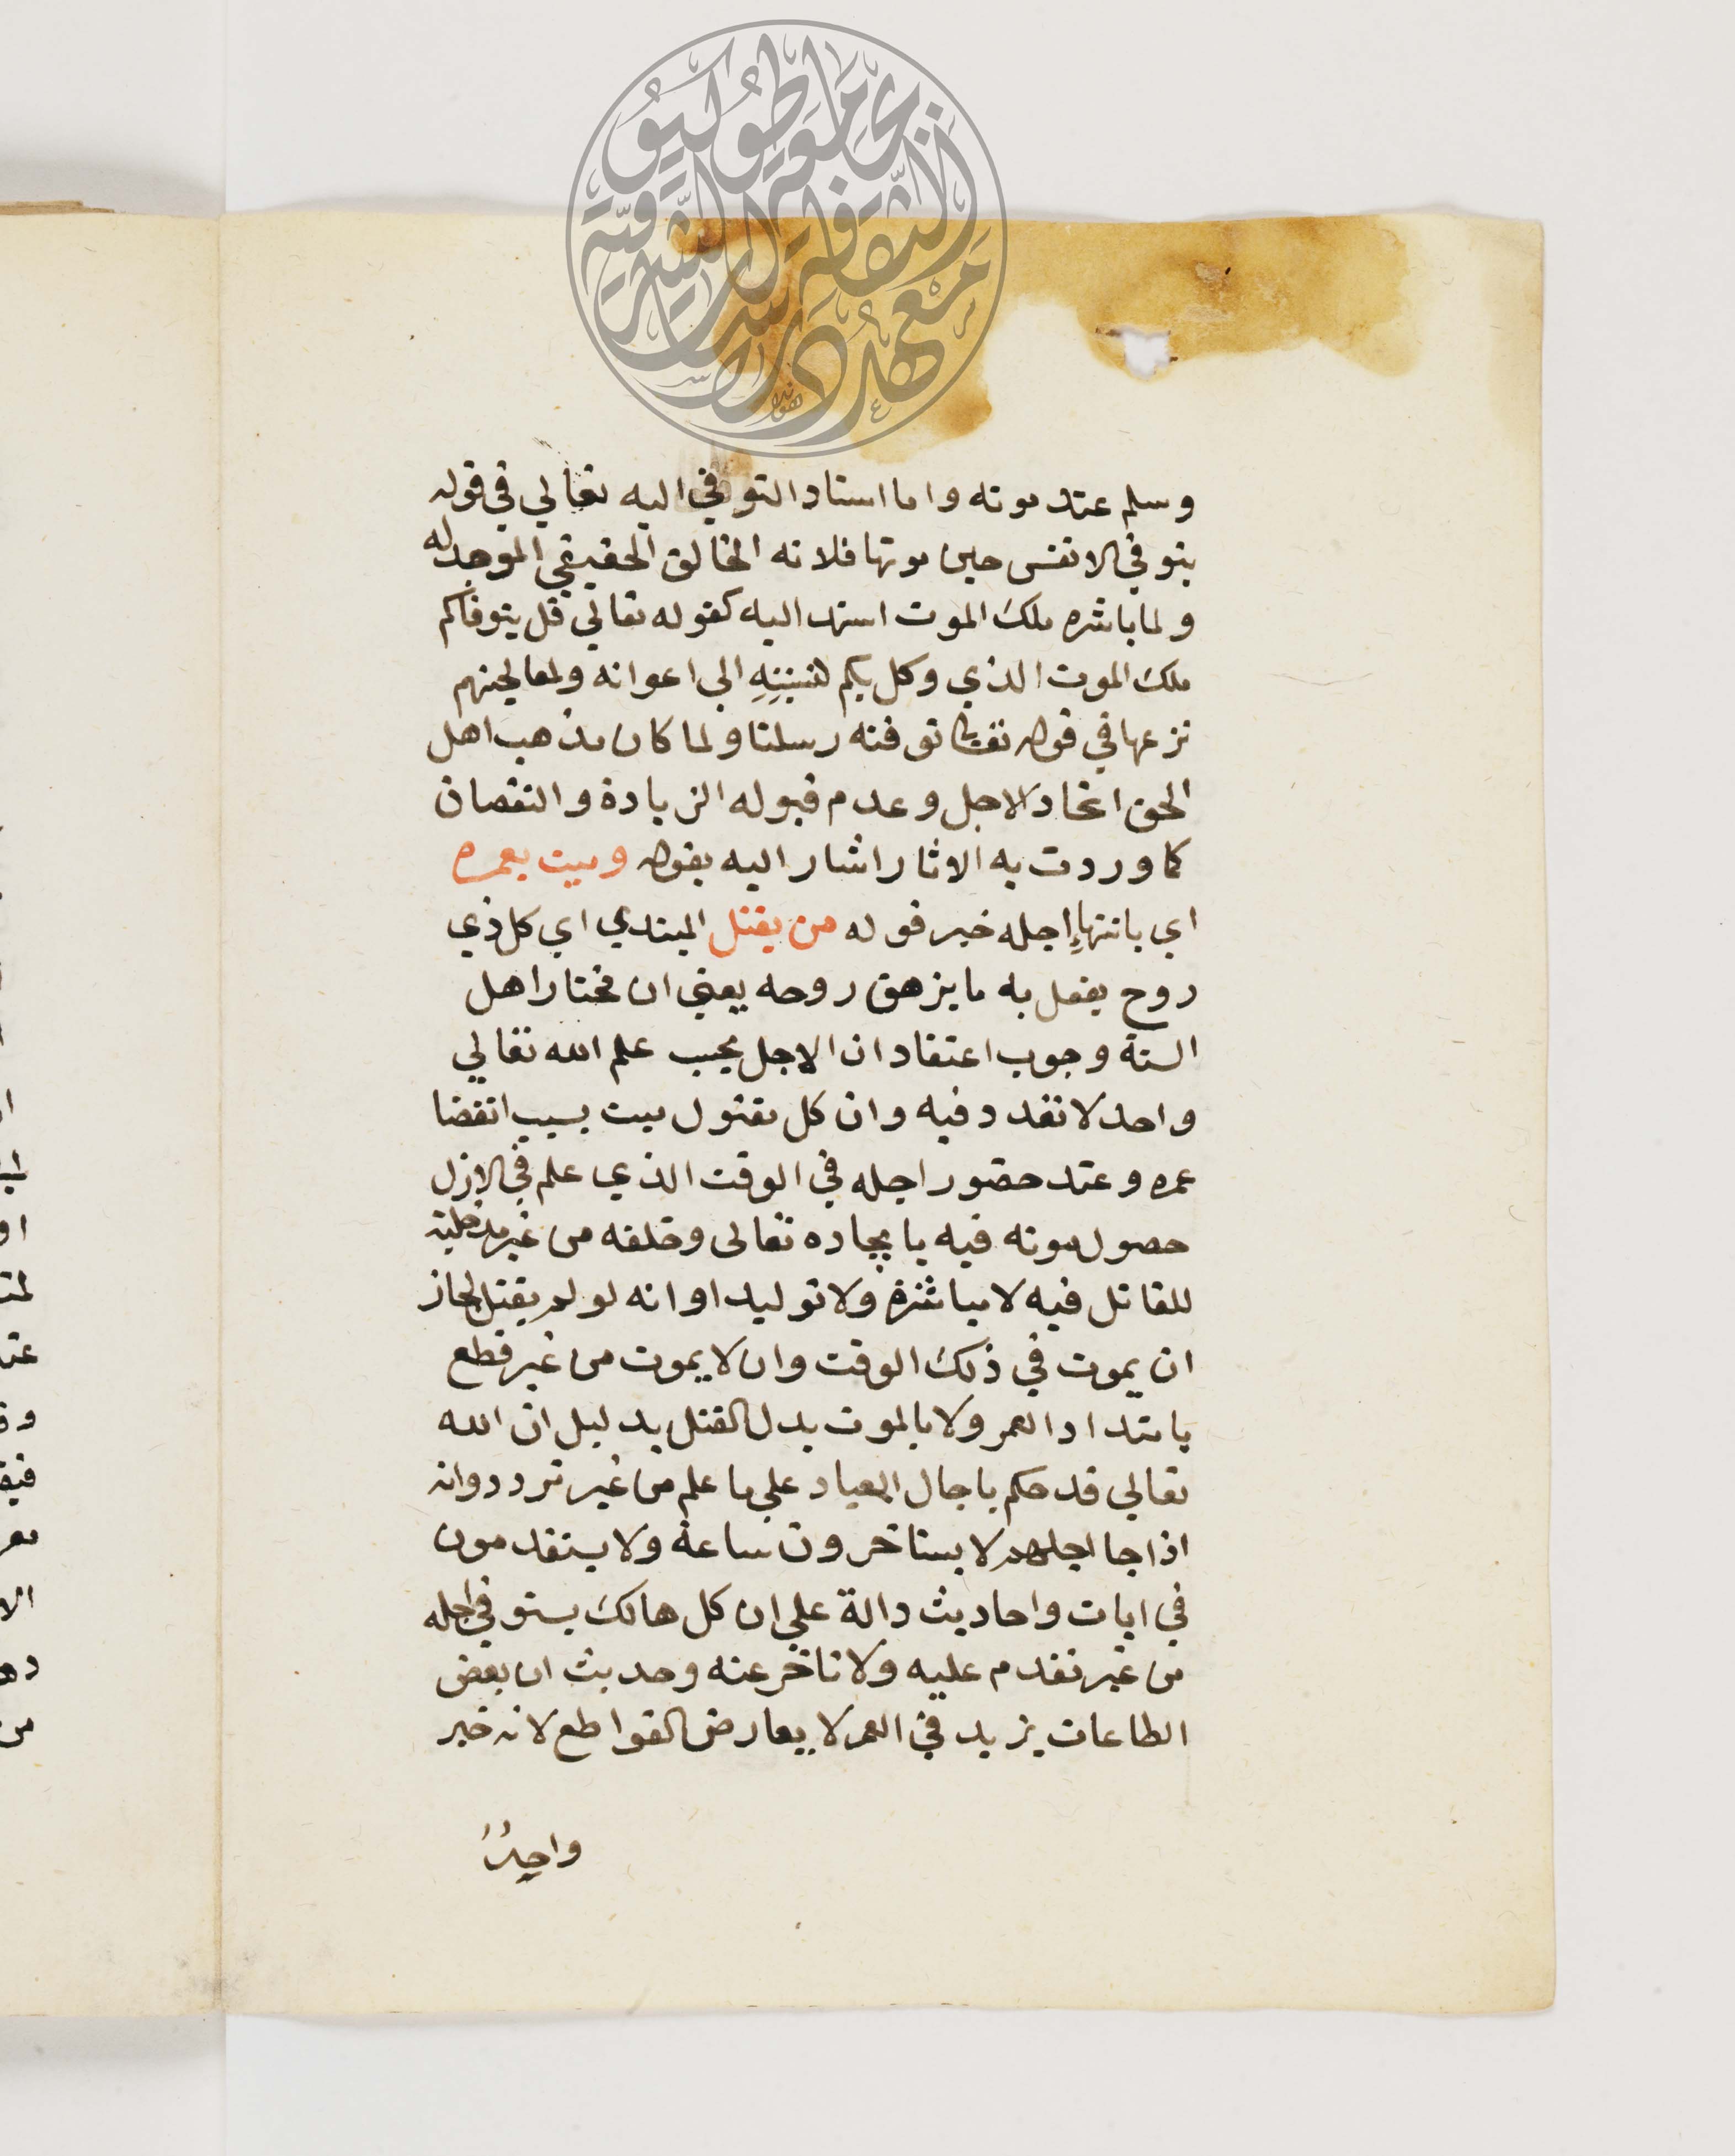 وسلم عند موته واما اسناد التوفي اليه تعالي في قوله
يتوفي الانفس حين موتها فلانه الخالق الحقيقي الموجد له
ولما باشره ملك الموت اسند اليه كقوله تعالي قل يتوفاكم
ملك الموت الذي وكل بكم الي اعوانه ولمعالجتهم
نزعها في قوله تعالي توفته رسلنا ولما كان مذهب اهل
الحق اتحاد الاجل وعدم قبوله الزيادة والنقصان
كما وردت به الاثار اشار اليه بقوله وميت بعمره
اي بانتهاء اجله خبر قوله من يقتل المبتدي اي كل ذي
روح يفعل به ما يزهق روحه يعني ان مختار اهل
السنة وجوب اعتقاد ان الاجل بحسب علم الله تعالي
واحد لا تعدد فيه وان كل مقتول ميت بسبب انقضا
عمره وعند حضور اجله في الوقت الذي علم في الازل
حصول موته فيه بايجاده تعالى وخلقه من غير مدخلية
للقاتل فيه لا مباشرة ولا توليدا وانه لو لم يقتل لجاز
ان يموت في ذلك الوقت وان لا يموت من غير قطع
بامتداد العمر ولا بالموت بدل القتل بدليل ان الله
تعالي قد حكم باجال العباد علي ما علم من غير تردد وانه
اذا جا اجلهم لا يستاخرون ساعة ولا يستقدمون
في ايات واحاديث دالة علي ان كل هالك يستوفي اجله
من غير تقدم عليه ولا تاخر عنه وحديث ان بعض
الطاعات يزيد في العمر لا يعارض القواطع لانه خبر
واحد